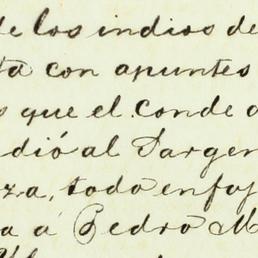 de los indios de
ta con apuntes
s que el conde d
dió al Sargen
za, todo en
a á Pedro M